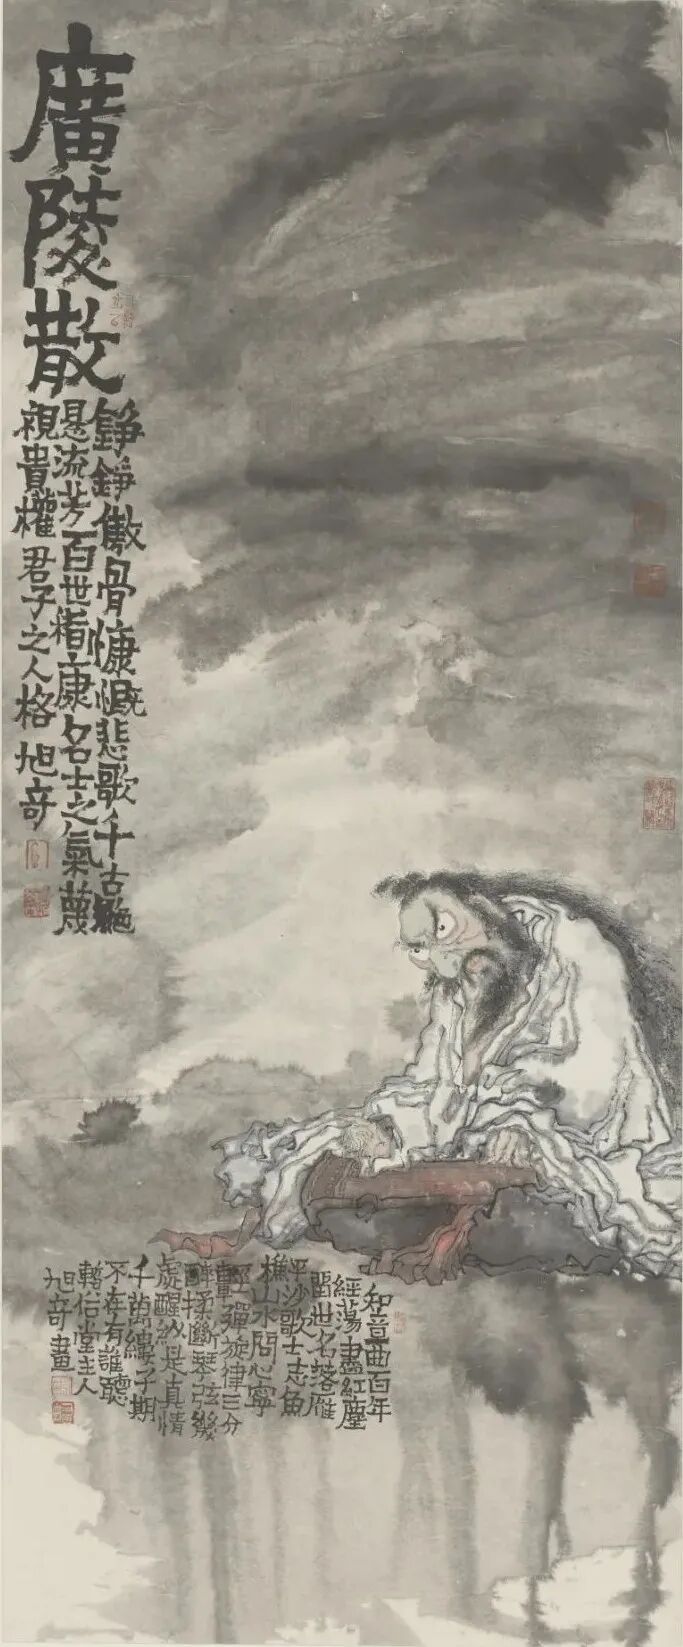 廣陵散
錚錚傲骨慷慨悲歌千古絶
悬流芳百世嵇康名士之氣蔑
視貴權君子之人格旭奇
知音曲百年
經蕩盡紅塵
閲世名落雁
平沙歌士志魚
樵山水問心寧
輕彈旋律三分
醉揉斷琴弦幾
處醒終是真情
千萬縷子期
不存有誰聽
轉俗堂主人
旭奇畫